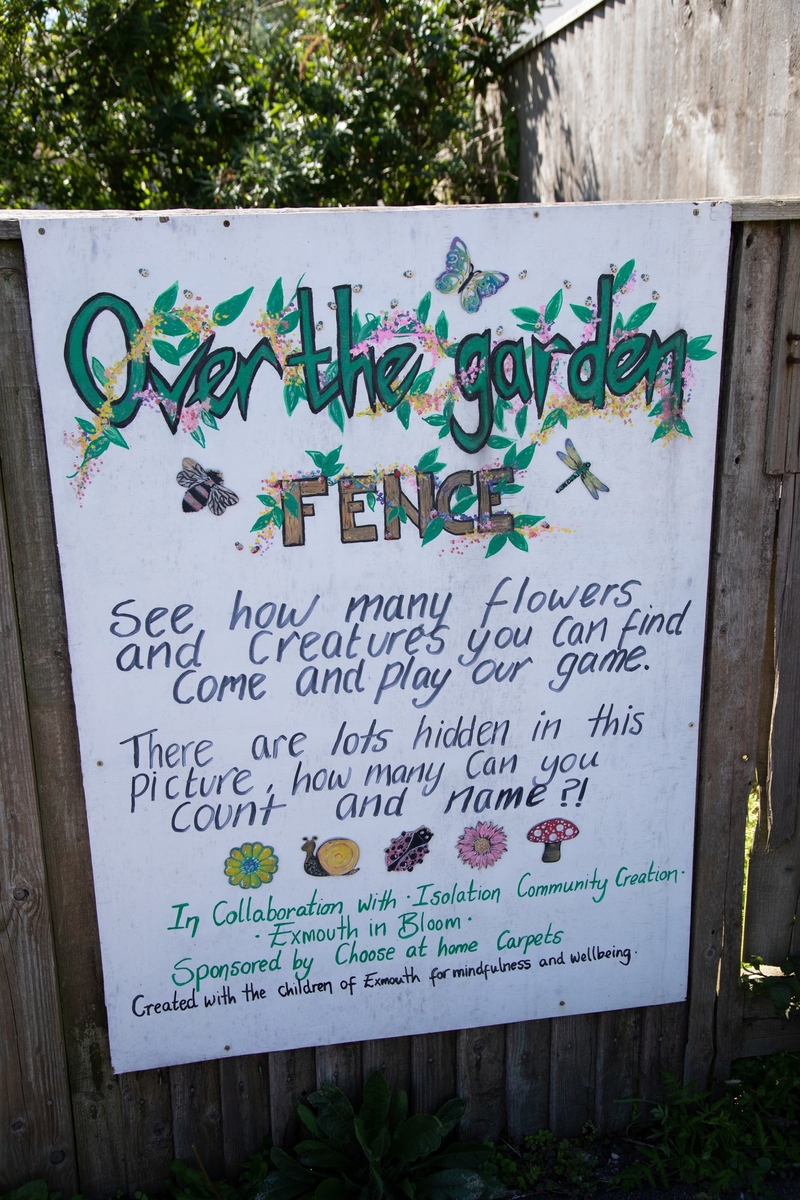 Over the garden
FENCE
See how many flowers
and Creatures you can find
Come and play our game.
There are lots hidden in this
picture, how many can you
count and name?!
In Collaboration with · Isolation Community Creation·
· Exmouth in Bloom ·
Sponsored by Choose at home Carpets
Created with the children of Exmouth for mindfulness and wellbeing.